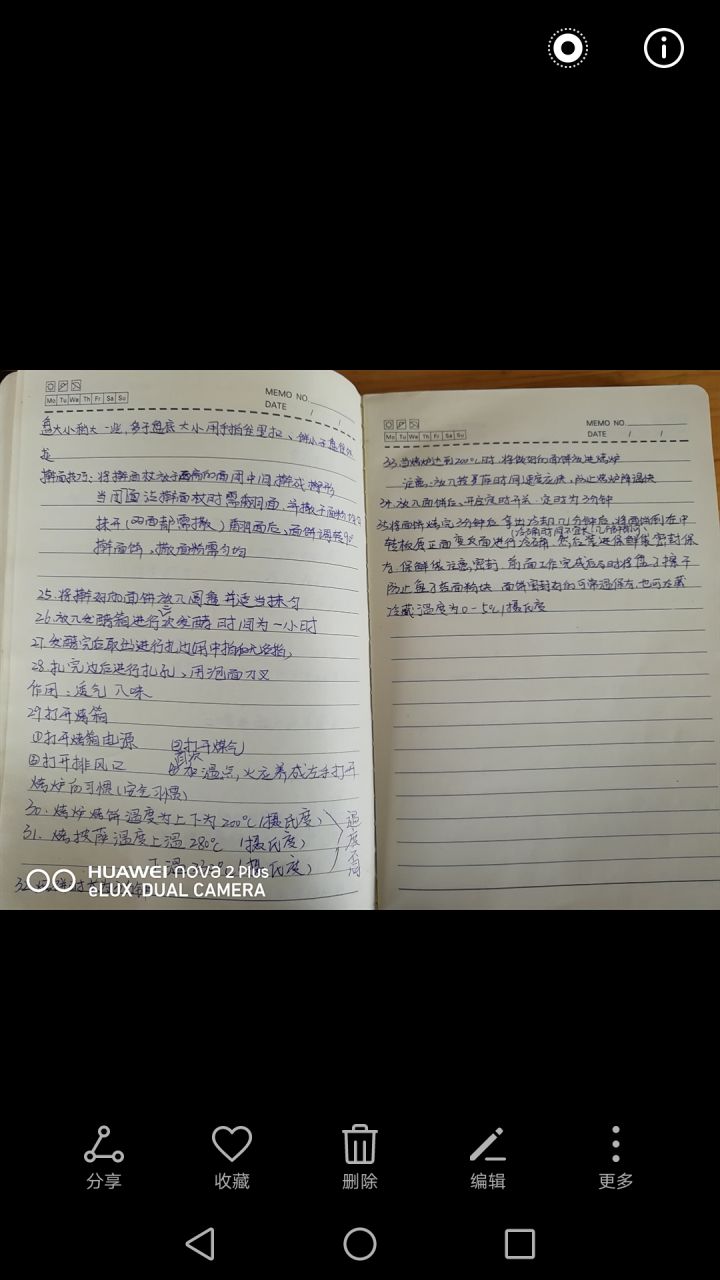 MEMO NO.
DATE / /
Mo Tu We Th Fr Sa Su
盘大小稍大一些,多于盘底大小用手拍往里拉、
是
擀面技巧:将擀面杖放于面前的面团中间擀成椭形
当团面沾擀面杖时需翻面,并撒干面粉均匀
抹开(两面都需撒)翻面后,面饼调转90°
擀面饼,撒面粉需匀均
25.将擀好的面饼放入圆盘并适当抹匀
26.放入发酵箱进行次发酵 时间为一小时
27.发酵完后取出进行扎边
28.扎完边后进行扎孔、用泡面刀叉
作用:透气 入味
29打开烤箱
①打开烤箱电源 ②打开煤气
③打开排风口 ④加温点火应养成左手打开
烤炉的习惯(安全习惯)
30.烤炉烤饼温度为上下为200℃(摄氏度)
31.烤披萨温度上温280℃(摄氏度)
下温 (摄氏度)
温度不同
32
HUAWEI nova 2 Plus
eLUX DUAL CAMERA
MEMO NO.
DATE / /
Mo Tu We Th Fr Sa Su
33.当烤炉达到200℃时,将做好的面饼放进烤炉
注意:放入披萨饼时间速度应快,防止烤炉降温快
34.放入面饼后、开启定时开关、定时为3分钟
35.将面饼烤完3分钟后 拿出冷却几分钟后,将面饼倒在中
(冷确时间不宜太
转板反正面变反面进行冷确 然后装进保鲜袋密封保
存 保鲜袋注意密封 前面工作完成后及时将盘子擦干
防止盘子粘面粉块 面饼密封好的可常温保存,也可冷藏
冷藏温度为0-5℃/摄氏度
分享
收藏
删除
编辑
更多